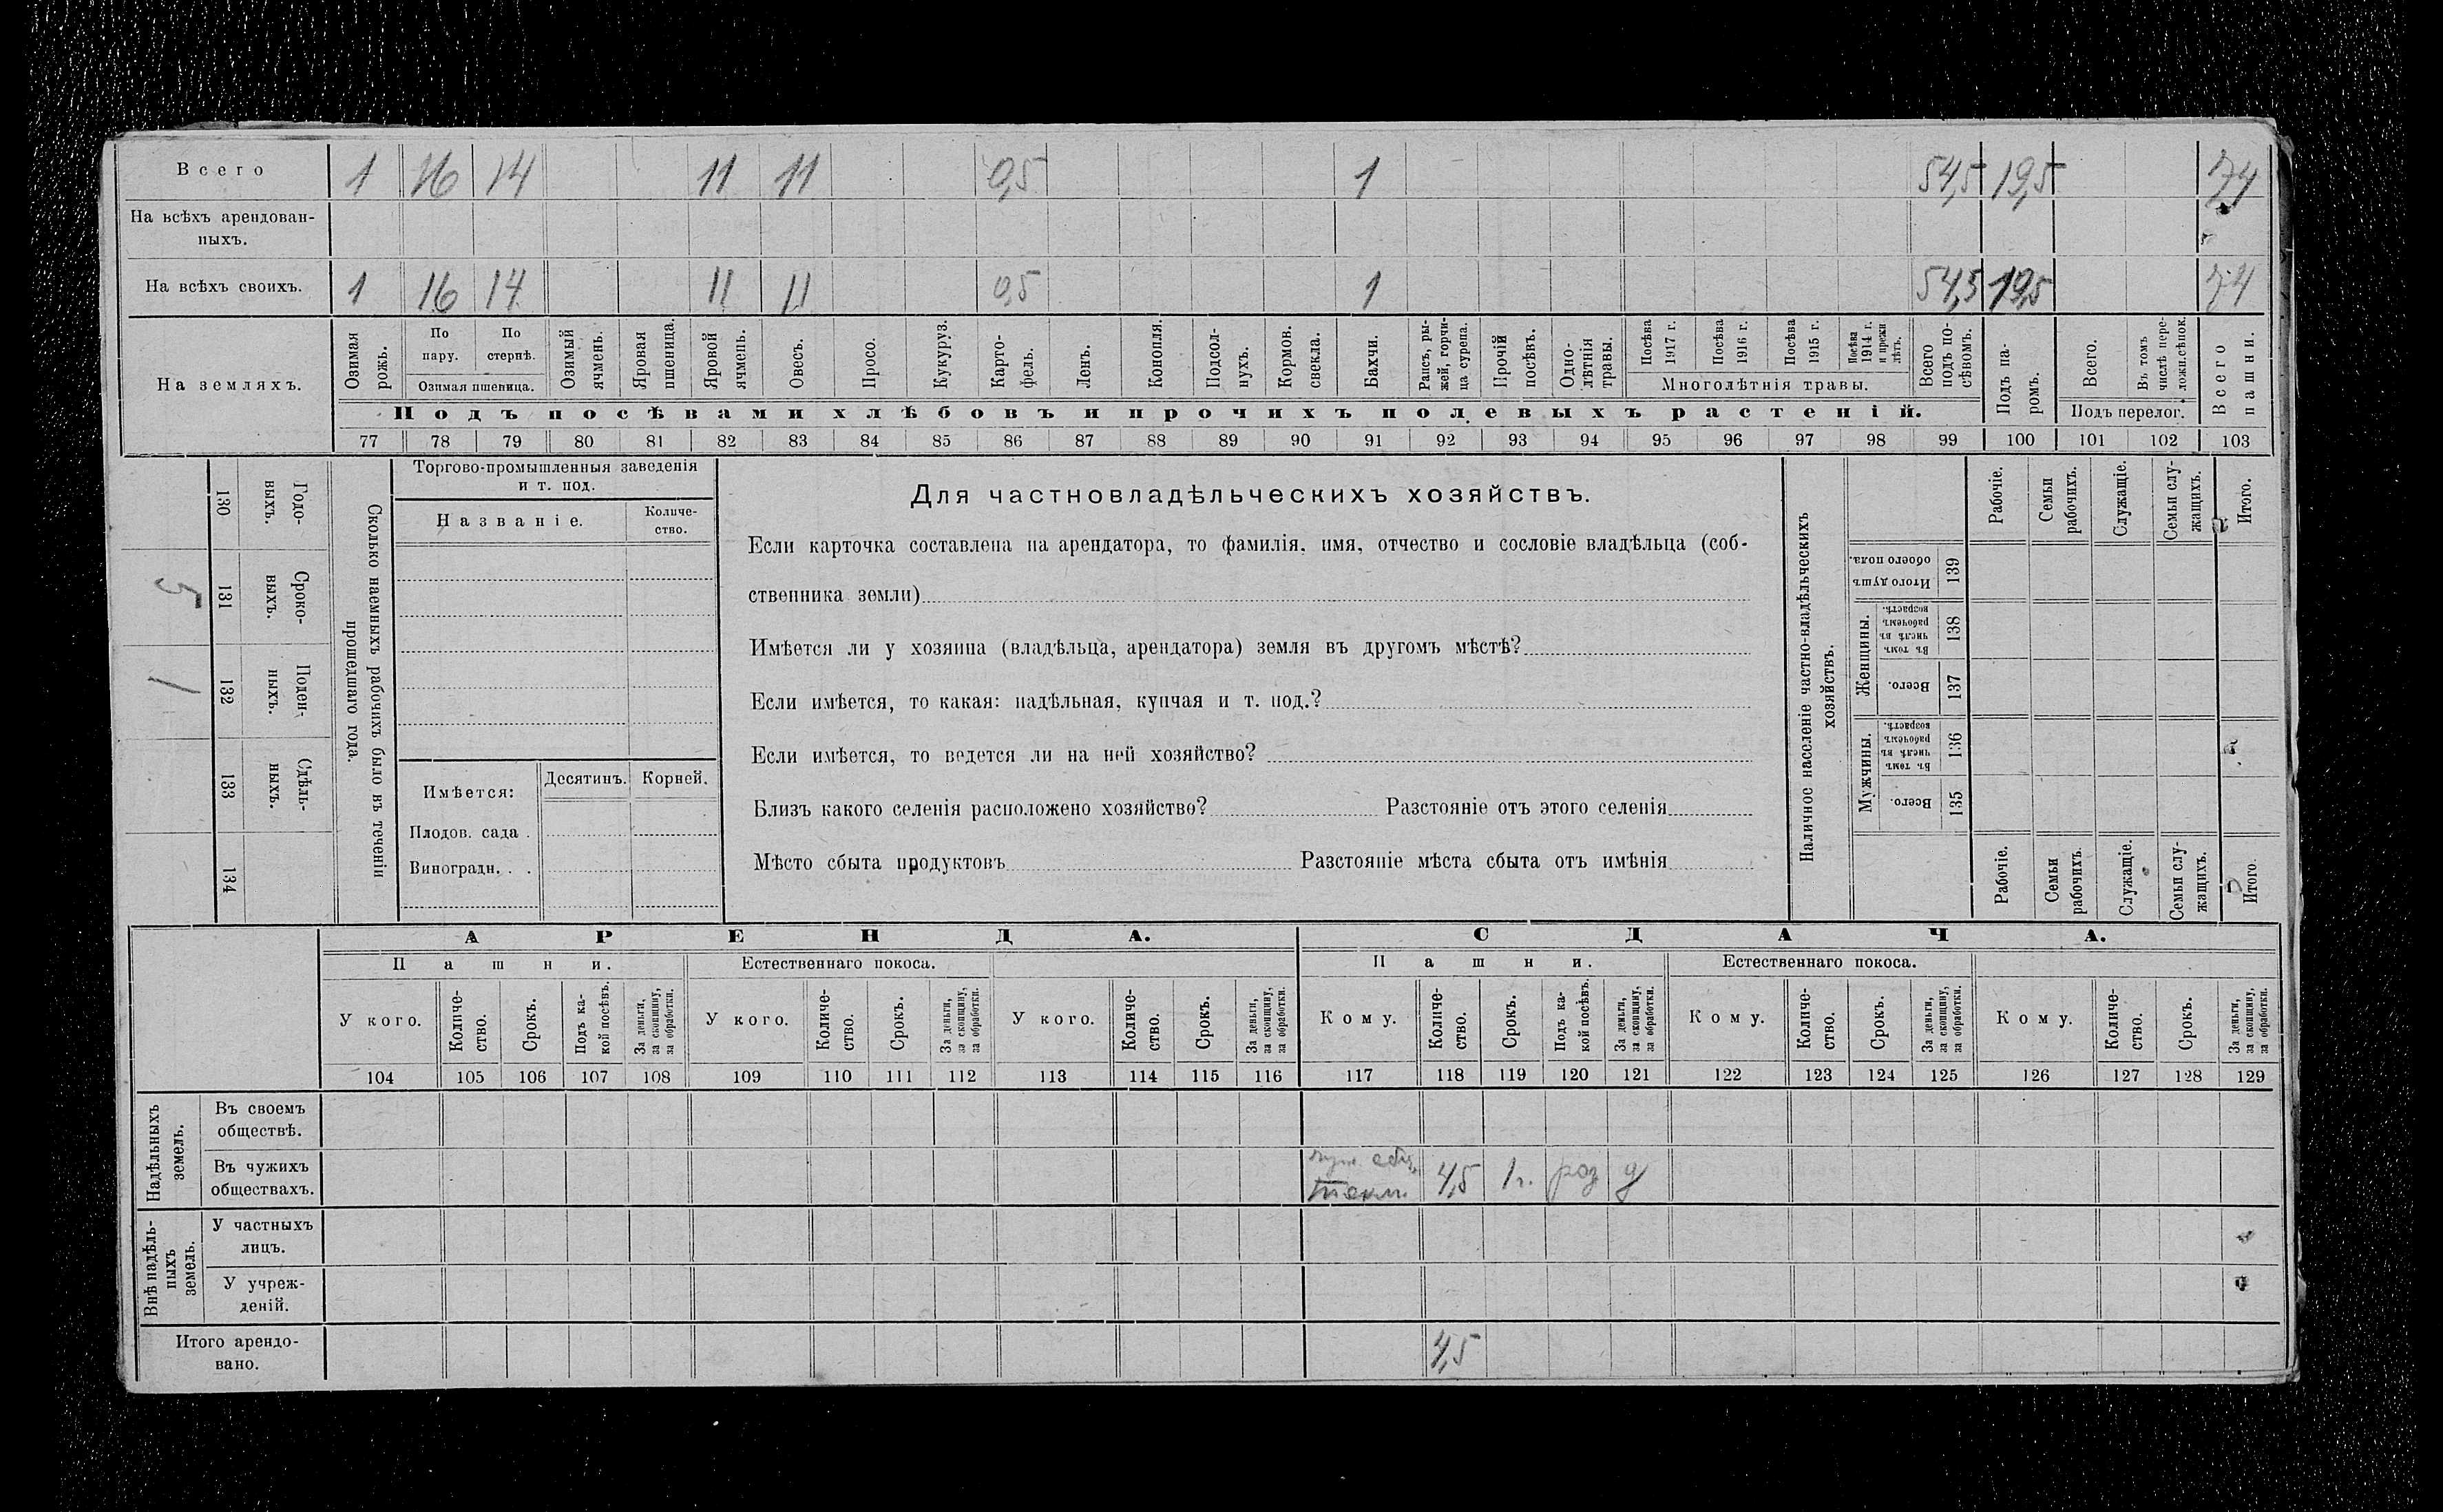 Всего 1 16 14 11 11 0,5 1 54,5 19,5 74
На всѣхъ арендован-
ныхъ.
На всѣхъ своихъ. 1 16 14 11 11 0,5 1 54,5 19,5 74
На земляхъ.
Озимая рожь.
По пару.
По стернѣ.
Озимая пшеница.
Озимый ячмень.
Яровая пшеница.
Яровой ячмень.
Овесъ.
Просо.
Кукуруз.
Карто-
фель.
Ленъ.
Конопля.
Подсол-
нухъ.
Кормов. свекла.
Бахчи.
Рапсъ, ры-
жей, горчи-
ца сурепа.
Прочій посѣвъ.
Одно-
лѣтнія травы.
Посѣва 1917 г.
Посѣва 1916 г.
Посѣва 1915 г.
Посѣва 1914 г. и прежн лѣтъ.
Многолѣтнія травы.
Всего подъ по-
сѣвомъ.
Подъ па-
ромъ.
Всего.
Въ томъ числѣ пере-
ложн.сѣнок.
Подъ перелог.
Всего пашни.
Подъ посѣвами хлѣбовъ и прочихъ полевыхъ растеній.
77 78 79 80 81 82 83 84 85 86 87 88 89 90 91 92 93 94 95 96 97 98 99 100 101 102 103
Сколько наемныхъ рабочихъ было въ теченіи
прошедшаго года.
Годо-
выхъ.
130
Сроко-
выхъ.
131
5
Поден-
ныхъ.
132
1
Сдѣль-
ныхъ.
133
134
Торгово-промышленныя заведенія
и т. под.
Названіе.
Количе-
ство.
Имѣется:
Десятинъ.
Корней.
Плодов. сада .
Виноградн. . .
Для частновладѣльческихъ хозяйствъ.
Если карточка составлена на арендатора, то фамилія, имя, отчество и сословіе владѣльца (соб-
ственника земли)
Имѣется ли у хозяина (владѣльца, арендатора) земля въ другомъ мѣстѣ?
Если имѣется, то какая: надѣльная, купчая и т. под.?
Если имѣется, то ведется ли на ней хозяйство?
Близъ какого селенія расположено хозяйство? Разстояніе отъ этого селенія
Мѣсто сбыта продуктовъ Разстояніе мѣста сбыта отъ имѣнія
Наличное населеніе частно-владѣльческихъ
хозяйствъ.
Рабочіе.
Семьи рабочихъ.
Служащіе.
Семьи слу-
жащихъ.
Итого.
Итого душъ обоего пола.
139
Женщины.
Въ томъ числѣ въ рабочемъ возрастѣ.
138
Всего.
137
Мужчины.
Въ томъ числѣ въ рабочемъ возрастѣ.
136
Всего.
135
Рабочіе.
Семьи рабочихъ.
Служащіе.
Семьи слу-
жащихъ.
Итого.
АРЕНДА. СДАЧА.
Пашни. Естественнаго покоса. Пашни. Естественнаго покоса.
У кого.
Количе-
ство.
Срокъ.
Подъ ка-
кой посѣвъ.
За деньги, за скопщину, за обработки.
У кого.
Количе-
ство.
Срокъ.
За деньги, за скопщину, за обработки.
У кого.
Количе-
ство.
Срокъ.
За деньги, за скопщину, за обработки.
Кому.
Количе-
ство.
Срокъ.
Подъ ка-
кой посѣвъ.
За деньги, за скопщину, за обработки.
Кому.
Количе-
ство.
Срокъ.
За деньги, за скопщину, за обработки.
Кому.
Количе-
ство.
Срокъ.
За деньги, за скопщину, за обработки.
104 105 106 107 108 109 110 111 112 113 114 115 116 117 118 119 120 121 122 123 124 125 126 127 128 129
Надѣльныхъ земель.
Въ своемъ
обществѣ.
Въ чужихъ
обществахъ.
4,5 1 г. роз д
Внѣ надѣль-
ныхъ земель.
У частныхъ
лицъ.
У учреж-
деній.
Итого арендо-
вано.
4,5